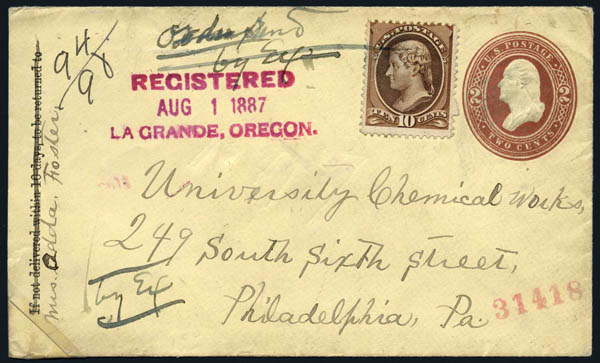 If not delivered within 10 days, to be returned to
Mrs. Adda. Foster.
94/98
by Ex
REGISTERED
AUG 1 1887
LA GRANDE, OREGON.
U.S. POSTAGE
TEN 10 CENTS
U.S. POSTAGE
2 2
TWO CENTS
University Chemical Works,
249 South Sixth Street,
by Ex
Philadelphia, Pa.
31418